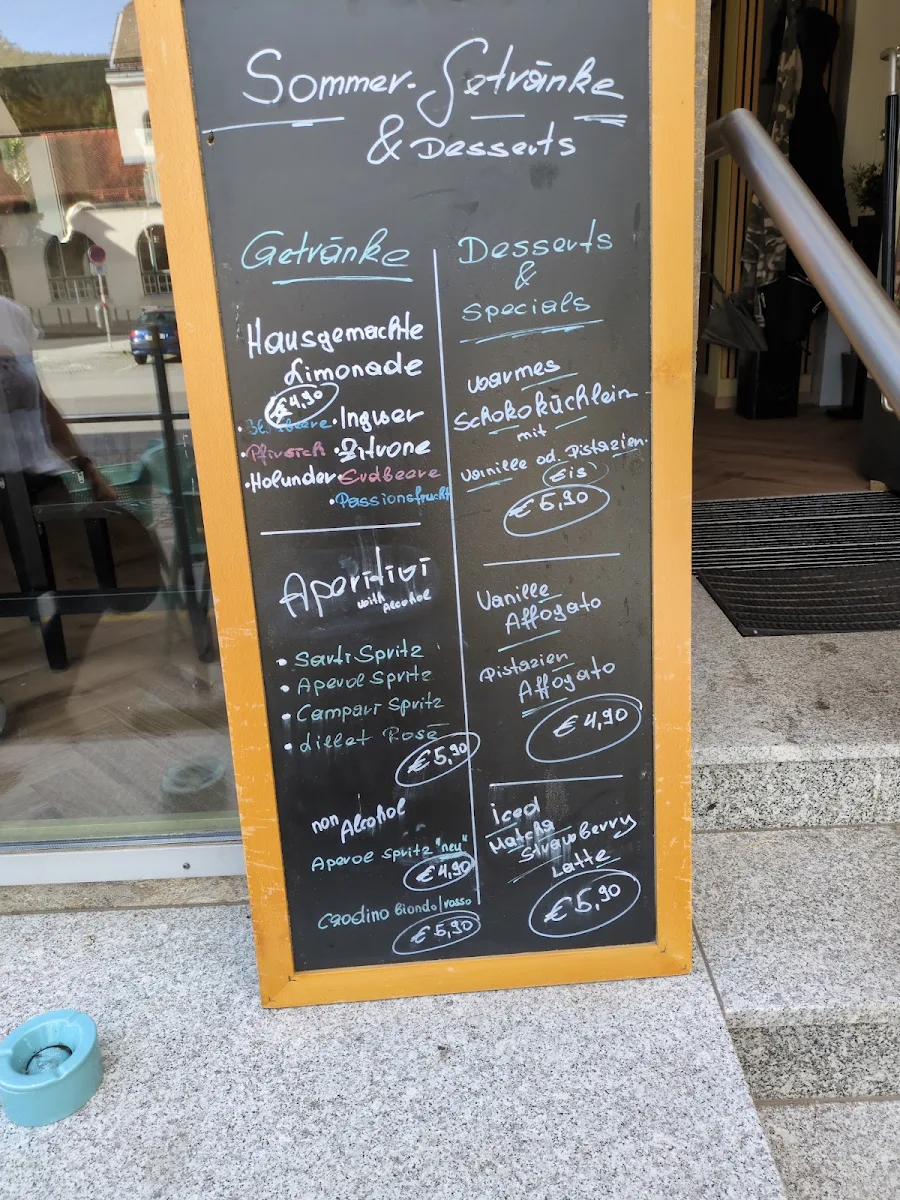 Sommer-Getränke
& Desserts
Getränke
Hausgemachte
Limonade
€4,90
• Ingwer
• Pfirsich • Zitrone
• Holunder • Erdbeere
• Passionsfrucht
Aperitivi
with Alcohol
• Sarti Spritz
• Aperol Spritz
• Campari Spritz
• Lillet Rosé
€5,90
non
Alcohol
Aperol Spritz "neu"
€4,90
Crodino biondo/rosso
€5,90
Desserts
&
Specials
warmes
Schokoküchlein
mit
Vanille od. Pistazien-
Eis
Vanille
Affogato
Pistazien
Affogato
€4,90
Iced
Matcha
Strawberry
Latte
€5,90